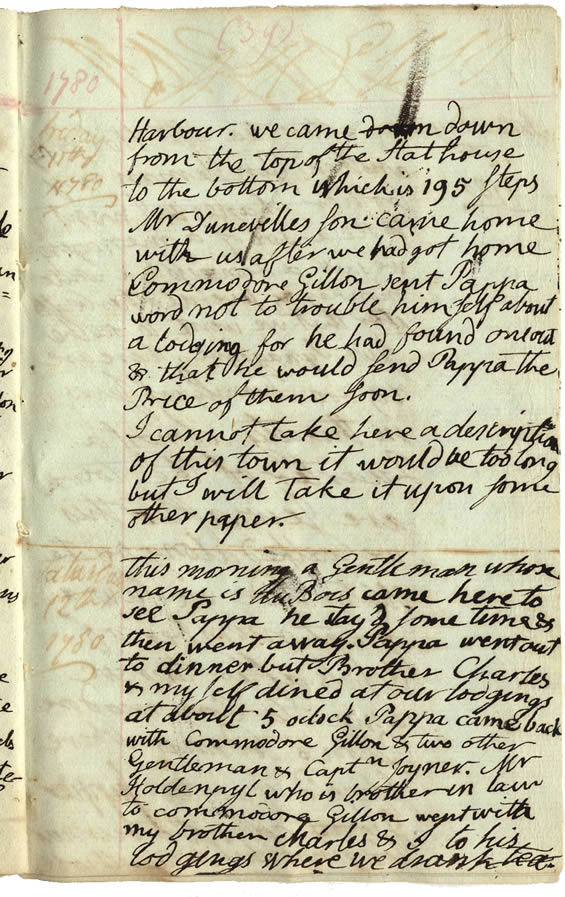 (39)
1780
friday
11th
1780
Harbour. we came down down
from the top of the Stathouse
to the bottom which is 195 steps
Mr Dunevilles son came home
with us after we had got home
Commodore Gillon sent Pappa
word not to trouble himself about
a lodging for he had found one out
& that he would send Pappa the
Price of them soon.
I cannot take here a description
of this town it would be too long
but I will take it upon some
other paper.
12th
1780
this morning a Gentleman whose
name is du Bois came here to
see Pappa he stay'd some time &
then went away. Pappa went out
to dinner but Brother Charles
& my self dined at our lodgings
at about 5 oclock Pappa came back
with Commodore Gillon & two other
Gentleman & Captn Joyner. Mr
Holdenpyl who is brother in law
to commodore Gillon went with
my brother Charles & I to his
lodgings where we drank tea-